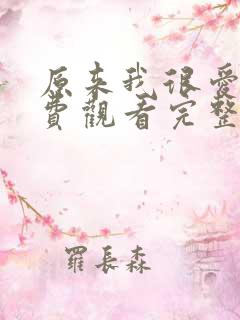 原来我很爱
费觀看完整
羅長森